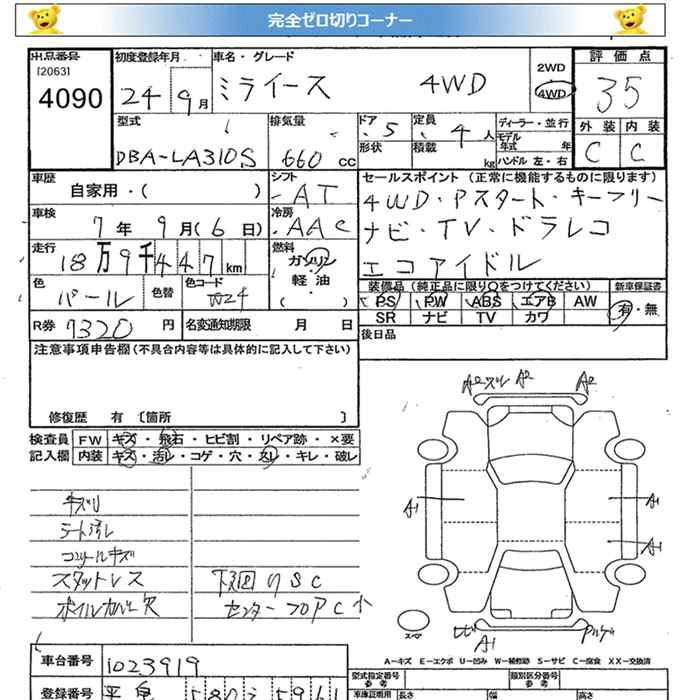 完全ゼロ切りコーナー
出品番号 初度登録年月 車名・グレード 2WD 評価点
[2063]
4090 24年9月 ミライース 4WD 4WD 35
型式 排気量 ドア 定員 ディーラー・並行 外装 内装
DBA-LA310S 660cc 5 4人 モデル年式 年 C C
形状 積載 kg ハンドル 左・右
車歴 シフト セールスポイント(正常に機能するものに限ります)
自家用・( ) AT 4WD・Pスタート・キーフリー
車検 冷房
7年9月(6日) AAC ナビ・TV・ドラレコ
走行 燃料
18万9千447km ガソリン・軽油 エコアイドル
色 色替 色コード 装備品(純正品に限り○をつけてください) 新車保証書
パール W24 PS PW ABS エアB AW 有・無
SR ナビ TV カワ
R券 7320円 名変通知期限 月 日 後日品
注意事項申告欄(不具合内容等は具体的に記入して下さい)
修復歴 有 〔箇所 〕
検査員 FW キズ・飛石・ヒビ割・リペア跡・×要
記入欄 内装 キズ・汚レ・コゲ・穴・スレ・キレ・破レ
A2 A2
A1 A1
A1
キズリ
シート汚レ
コンソールキズ
スタットレス 下廻りSC
ホイルカバー欠 センターフロアC小
A1
A-キズ E-エクボ U-凹み W-補修跡 S-サビ C-腐食 XX-交換済
車台番号 1023919 型式指定番号 参考 類別区分番号 参考
登録番号 580 5961 車庫証明用 長さ 幅 高さ